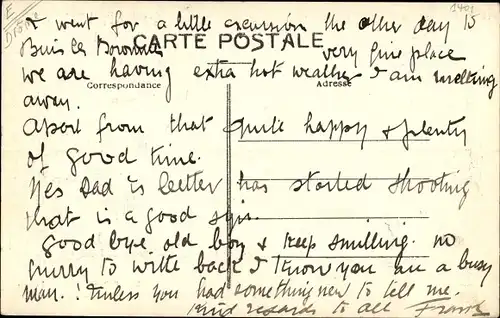 I went for a little excursion the other day to
Buis les Baronnies
CARTE POSTALE
very fine place
we are having extra hot weather I am melting
Correspondance
Adresse
away.
Apart from that quite happy & plenty
of good time.
Yes Dad is better has started shooting
that is a good sign.
good bye old boy & keep smilling. no
hurry to write back I know you are a busy
man.! Unless you had something new to tell me.
Kind regards to all Frank